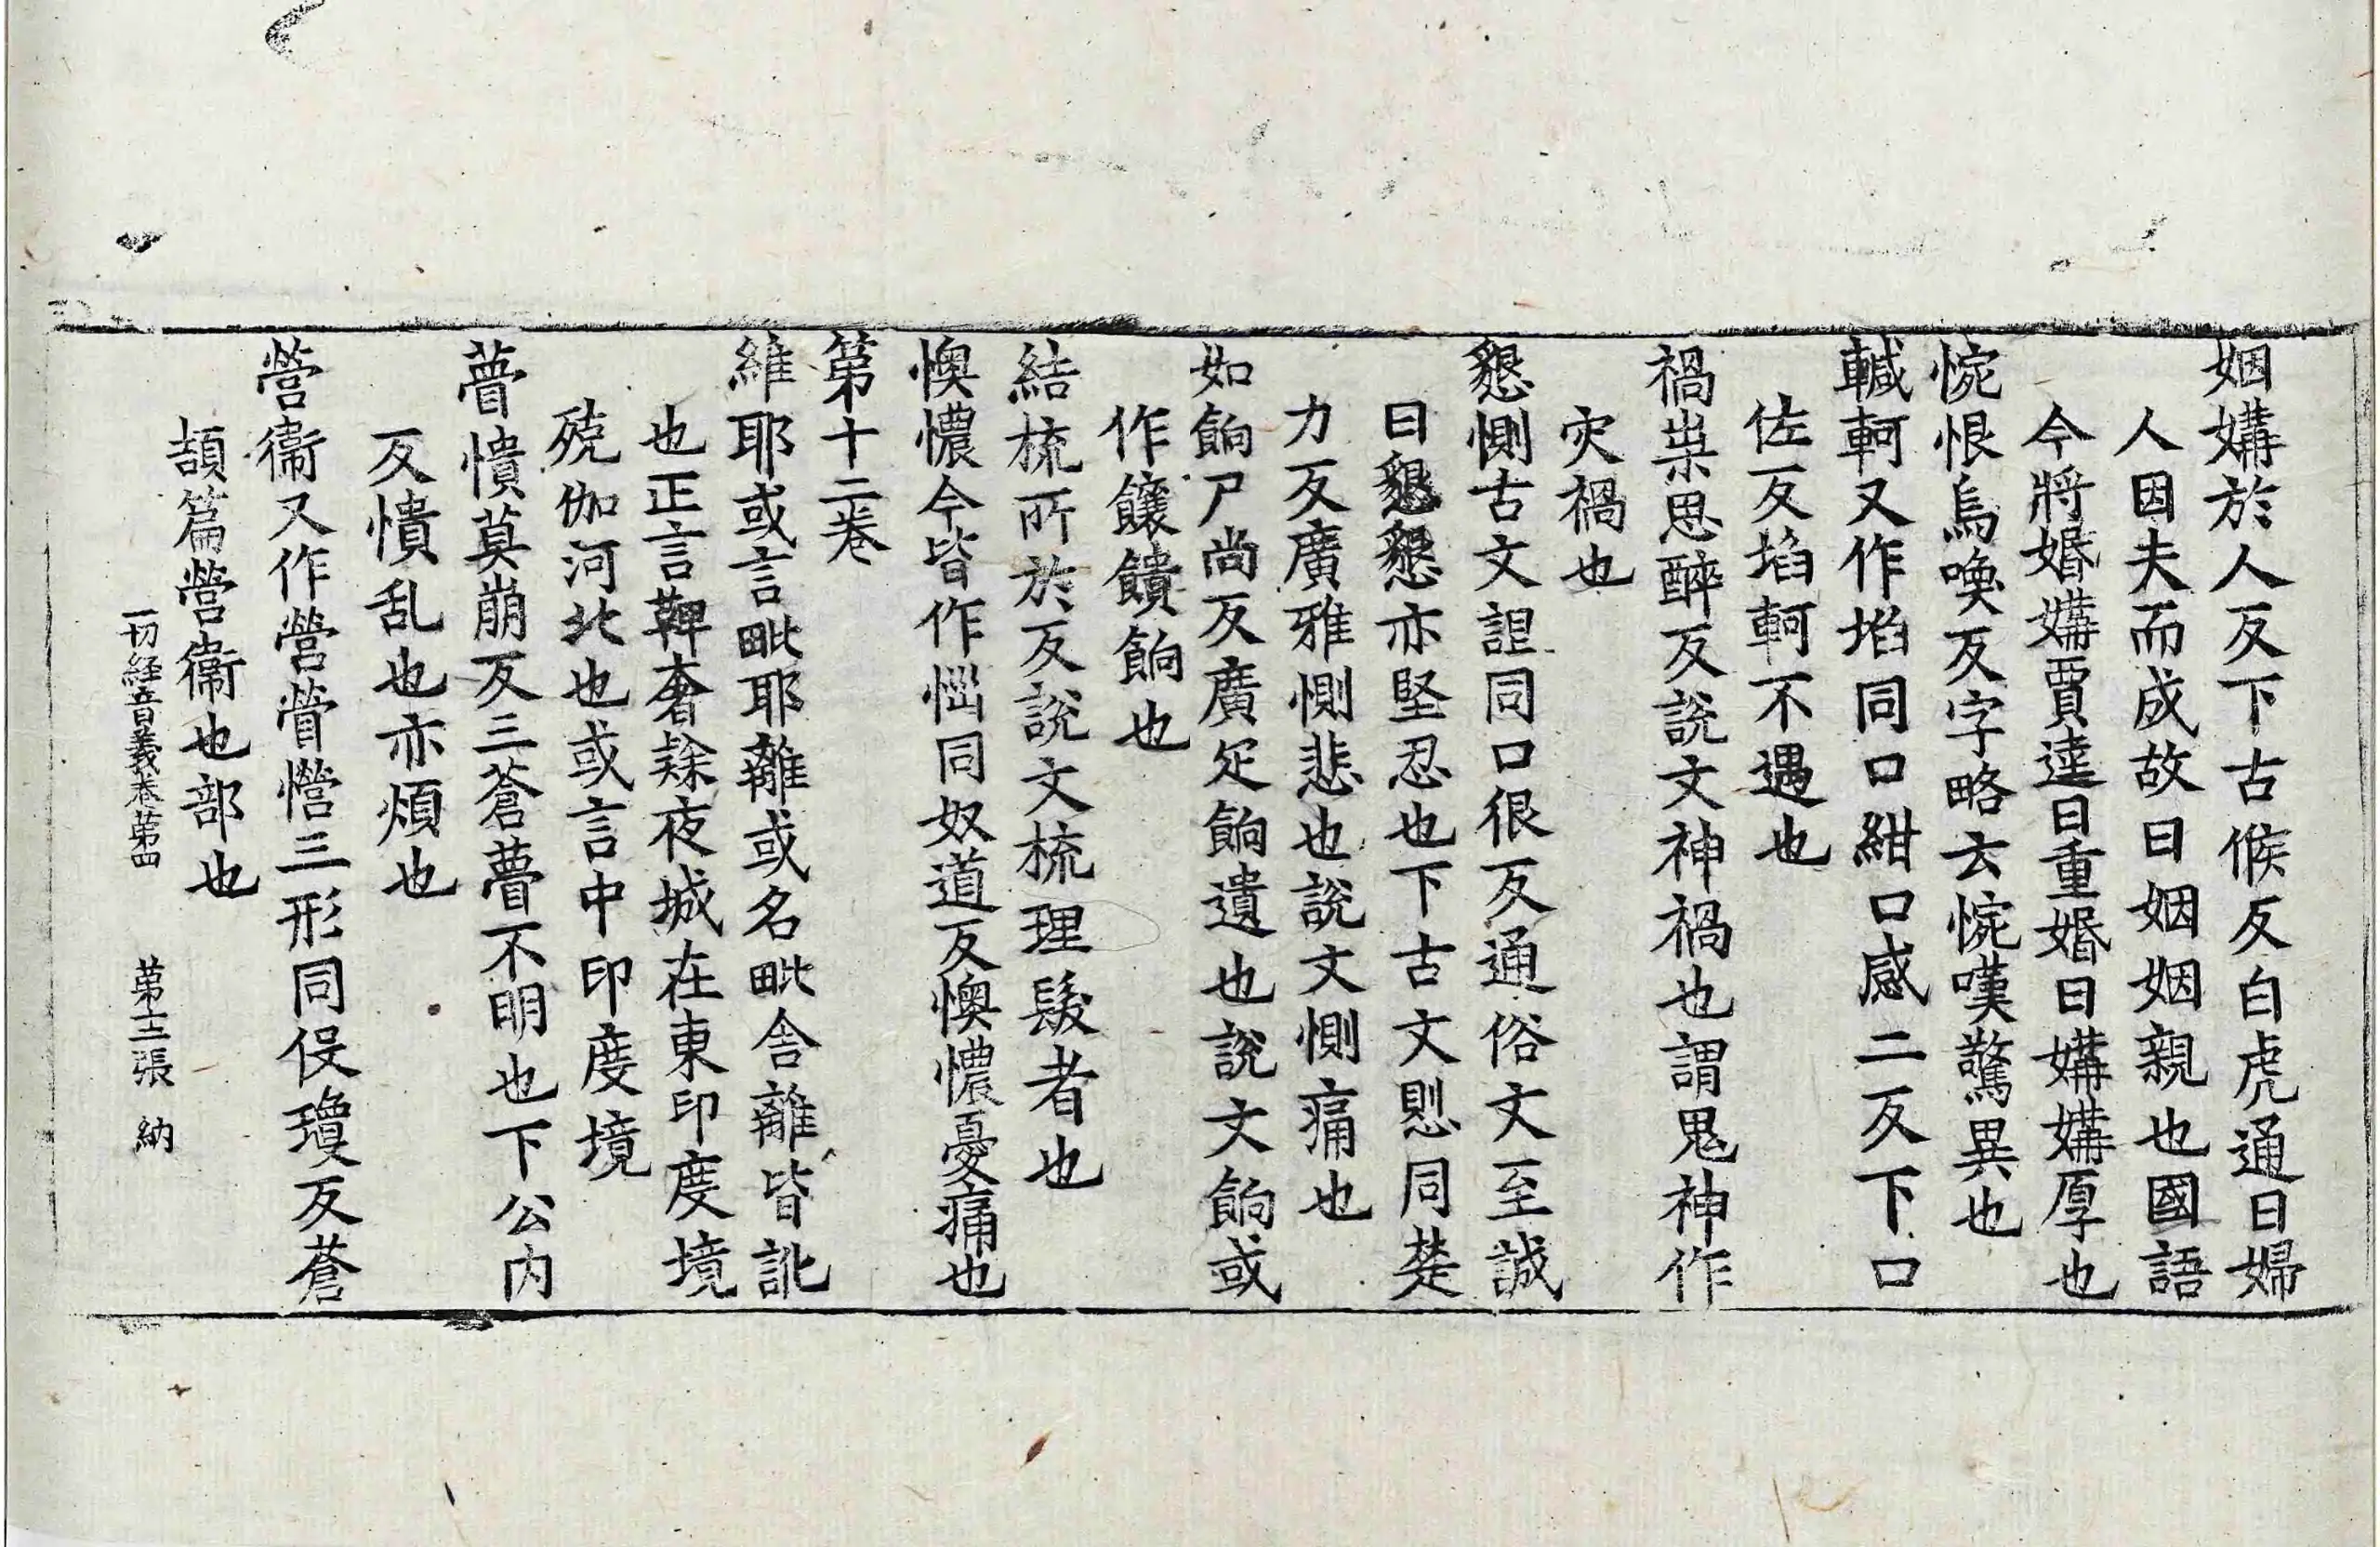 姻媾於人反下古候反白虎通曰婦
人因夫而成故曰姻姻親也國語
今將婚媾賈逵曰重婚曰媾媾厚也
惋恨烏喚反字略云惋嘆驚異也
轗軻又作埳同口紺口感二反下口
佐反埳軻不遇也
禍祟思醉反說文神禍也謂鬼神作
灾禍也
懇惻古文詪同口很反通俗文至誠
曰懇懇亦堅忍也下古文恖同楚
力反廣雅惻悲也說文惻痛也
如餉尸尚反廣疋餉遺也說文餉或
作饟饋餉也
結梳所於反說文梳理髮者也
懊憹今皆作惱同奴道反懊憹憂痛也
第十二卷
維耶或言毗耶離或名毗舍離皆訛
也正言鞞奢隸夜城在東印度境
殑伽河北也或言中印度境
瞢憒莫崩反三蒼瞢不明也下公內
反憒乱也亦煩也
營衞又作營䁝憕三形同役瓊反蒼
頡篇營衞也部也
一切経音義卷第四 第十三張 納